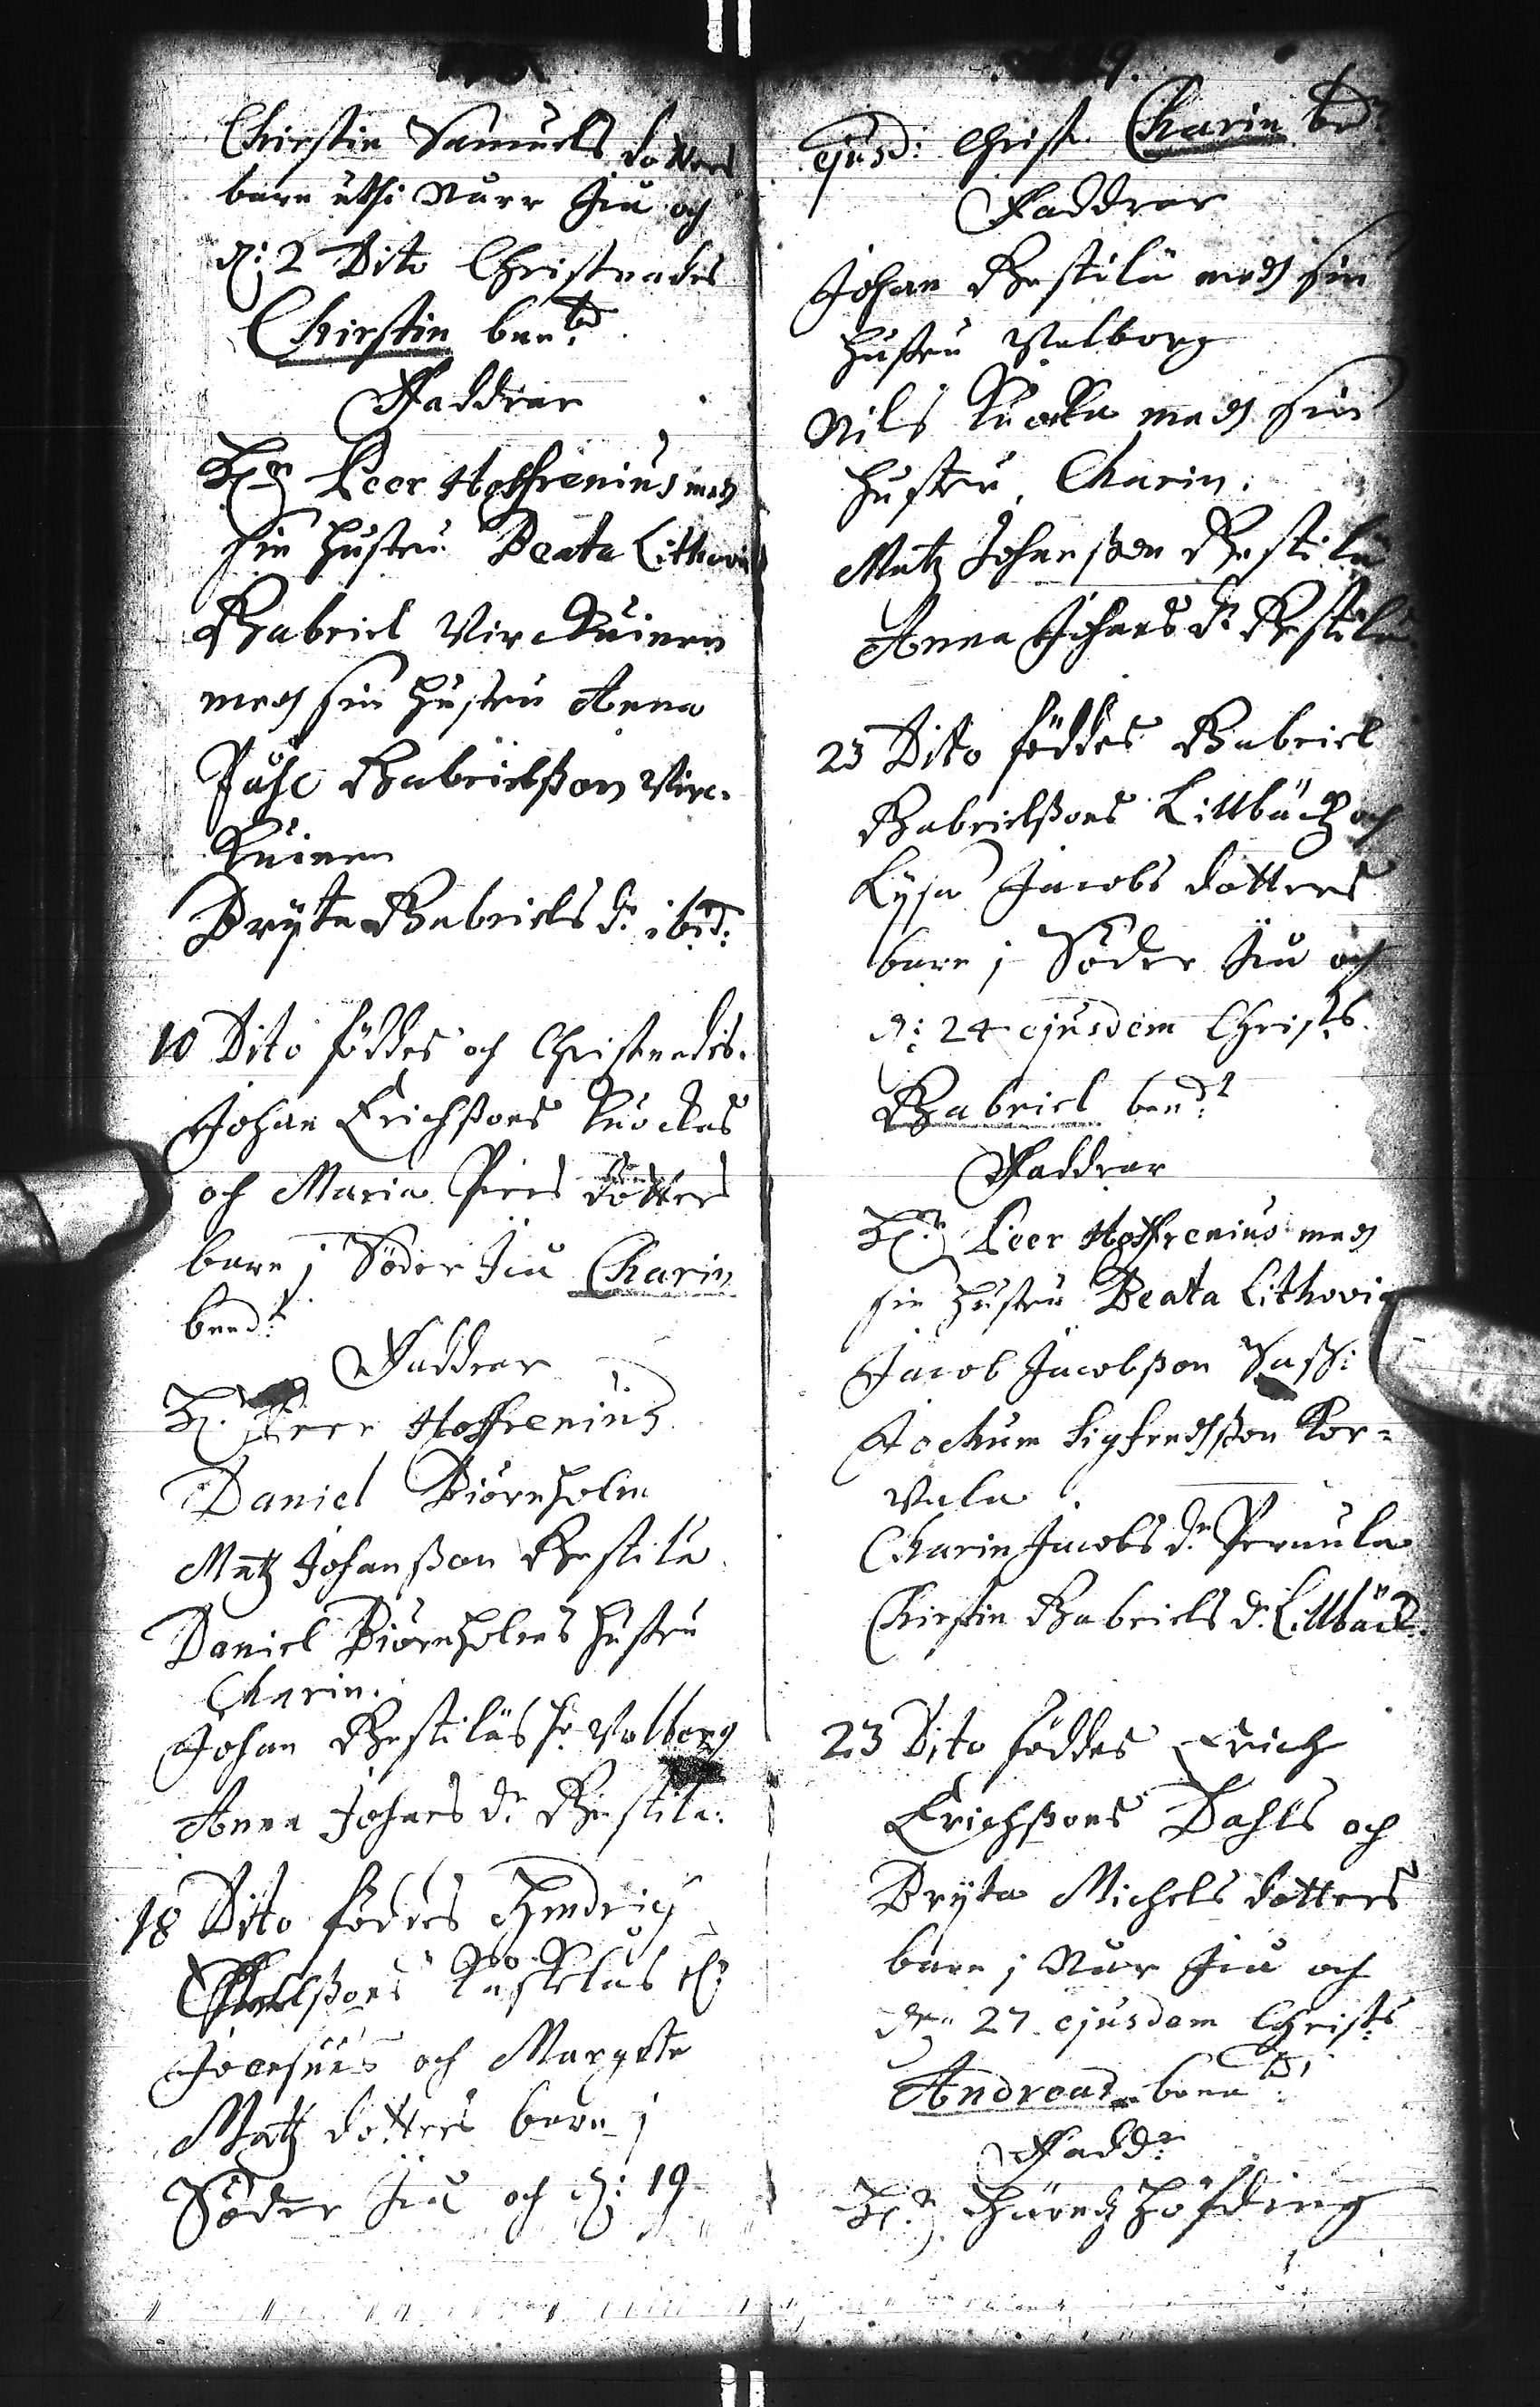 Chirstin Samuels dotters
barn uthi Nurr Jiu och
d: 2 Dito Christnades
Chirstin benbd.
Faddrar
Hr Peer Hoffrenius med
sin hustru Beata Lithovia
Gabriel Virckuinen
med sin hustru Anna
Påhl Gabrielsson Virc-
kuinen
Bryta Gabriels d. ibid:
10 Dito föddes och Christnades.
Johan Erichssons Kuockas
och Maria Pers dotters
barn j Söder Jiu Charin
bend:
Faddrar
H. Peer Hoffrenius
Daniel Biörnholm
Matz Johansson Gestila
Daniel Biörnholms hustru
Charin.
Johan Gestiläs h. Valborg
Anna Johans dr Gestila:
18 Dito föddes Hendrich
och Margeta
Matz dotters barn j
Söder Jiu och d: 19
ejusd: Christ. Charin bd
Faddrar
Johan Gestilä med sin
hustru Valborg
Nils Kuocka med sin
hustru, Charin.
Matz Johansson Gestilä
Anna Johans dr Gestila
23 Dito föddes Gabriel
Gabrielssons Lillbäck och
Lysa Jacobs dotters
barn j Söder Jiu och
d: 24 ejusdem Christs.
Gabriel bend:
Faddrar
Hr Peer Hoffrenius med
sin hustru Beata Lithovia
Jacob Jacobsson Sassi
Jochum Sigfredsson Kor-
vala
Charin Jacobs dr
Chirstin Gabriels d. Lillbäck.
23 Dito föddes Erich
Erichssons Dahls och
Bryta Michels dotters
barn j Nur Jiu och
den 27 ejusdem Christs
Andreas benbd:
Faddr
Hr Häredz höfding